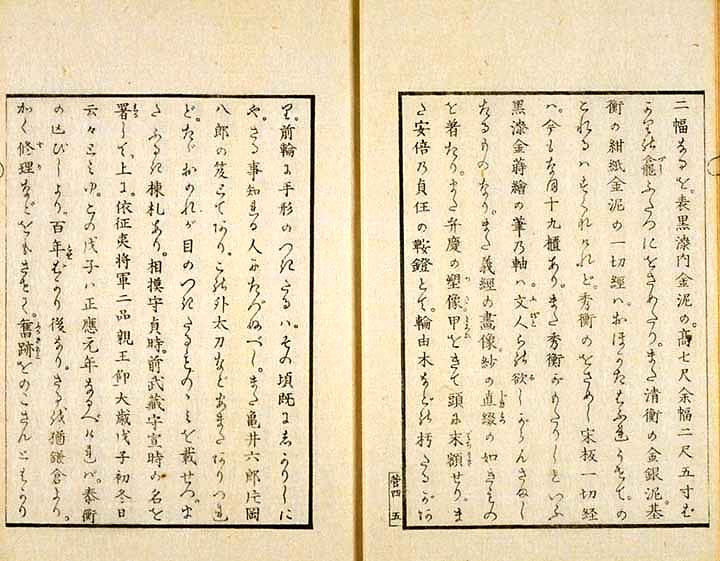 二幅なるを。表黒漆内金泥の。高七尺余幅二尺五寸む
かりの龕ふたつにをさめたり。また清衡の金銀泥。基
衡の紺紙金泥の一切經ハ。おほかた うせて。の
これるハ けれど。秀衡のをさめし宋板一切經
ハ。今もなほ十九櫃あり。また秀衡がもたりしといふ
黒漆金蒔繪の筆乃軸ハ。文人らの欲しからんさまし
たるものなり。また義經の畫像。紗の直綴の如きもの
を着たり。また弁慶の塑像甲をきて頭に末額せり。ま
た安倍乃貞任の鞍鐙とて。輪由木などの朽たるがあ
菅四 五
り。前輪に手形のつきたるハ。その頃既にしかりしに
や。さる事知れる人にたづぬべし。また亀井六郎片岡
八郎の笈とてあり。この外太刀などあまたありつれ
ど。たゞおのれが目のつきたるものゝミを載せつ。ま
たふるき棟札あり。相摸守貞時。前武藏守宣時の名を
署して。上に。依征夷将軍二品親王仰大歳戊子初冬日
云々とミゆ。この戊子ハ正應元年なるべけれバ。泰衡
のほろびしより。百年ばかり後なり。さるを猶鎌倉より。
かく修理などをもさせて。舊跡をのこさんとはかり